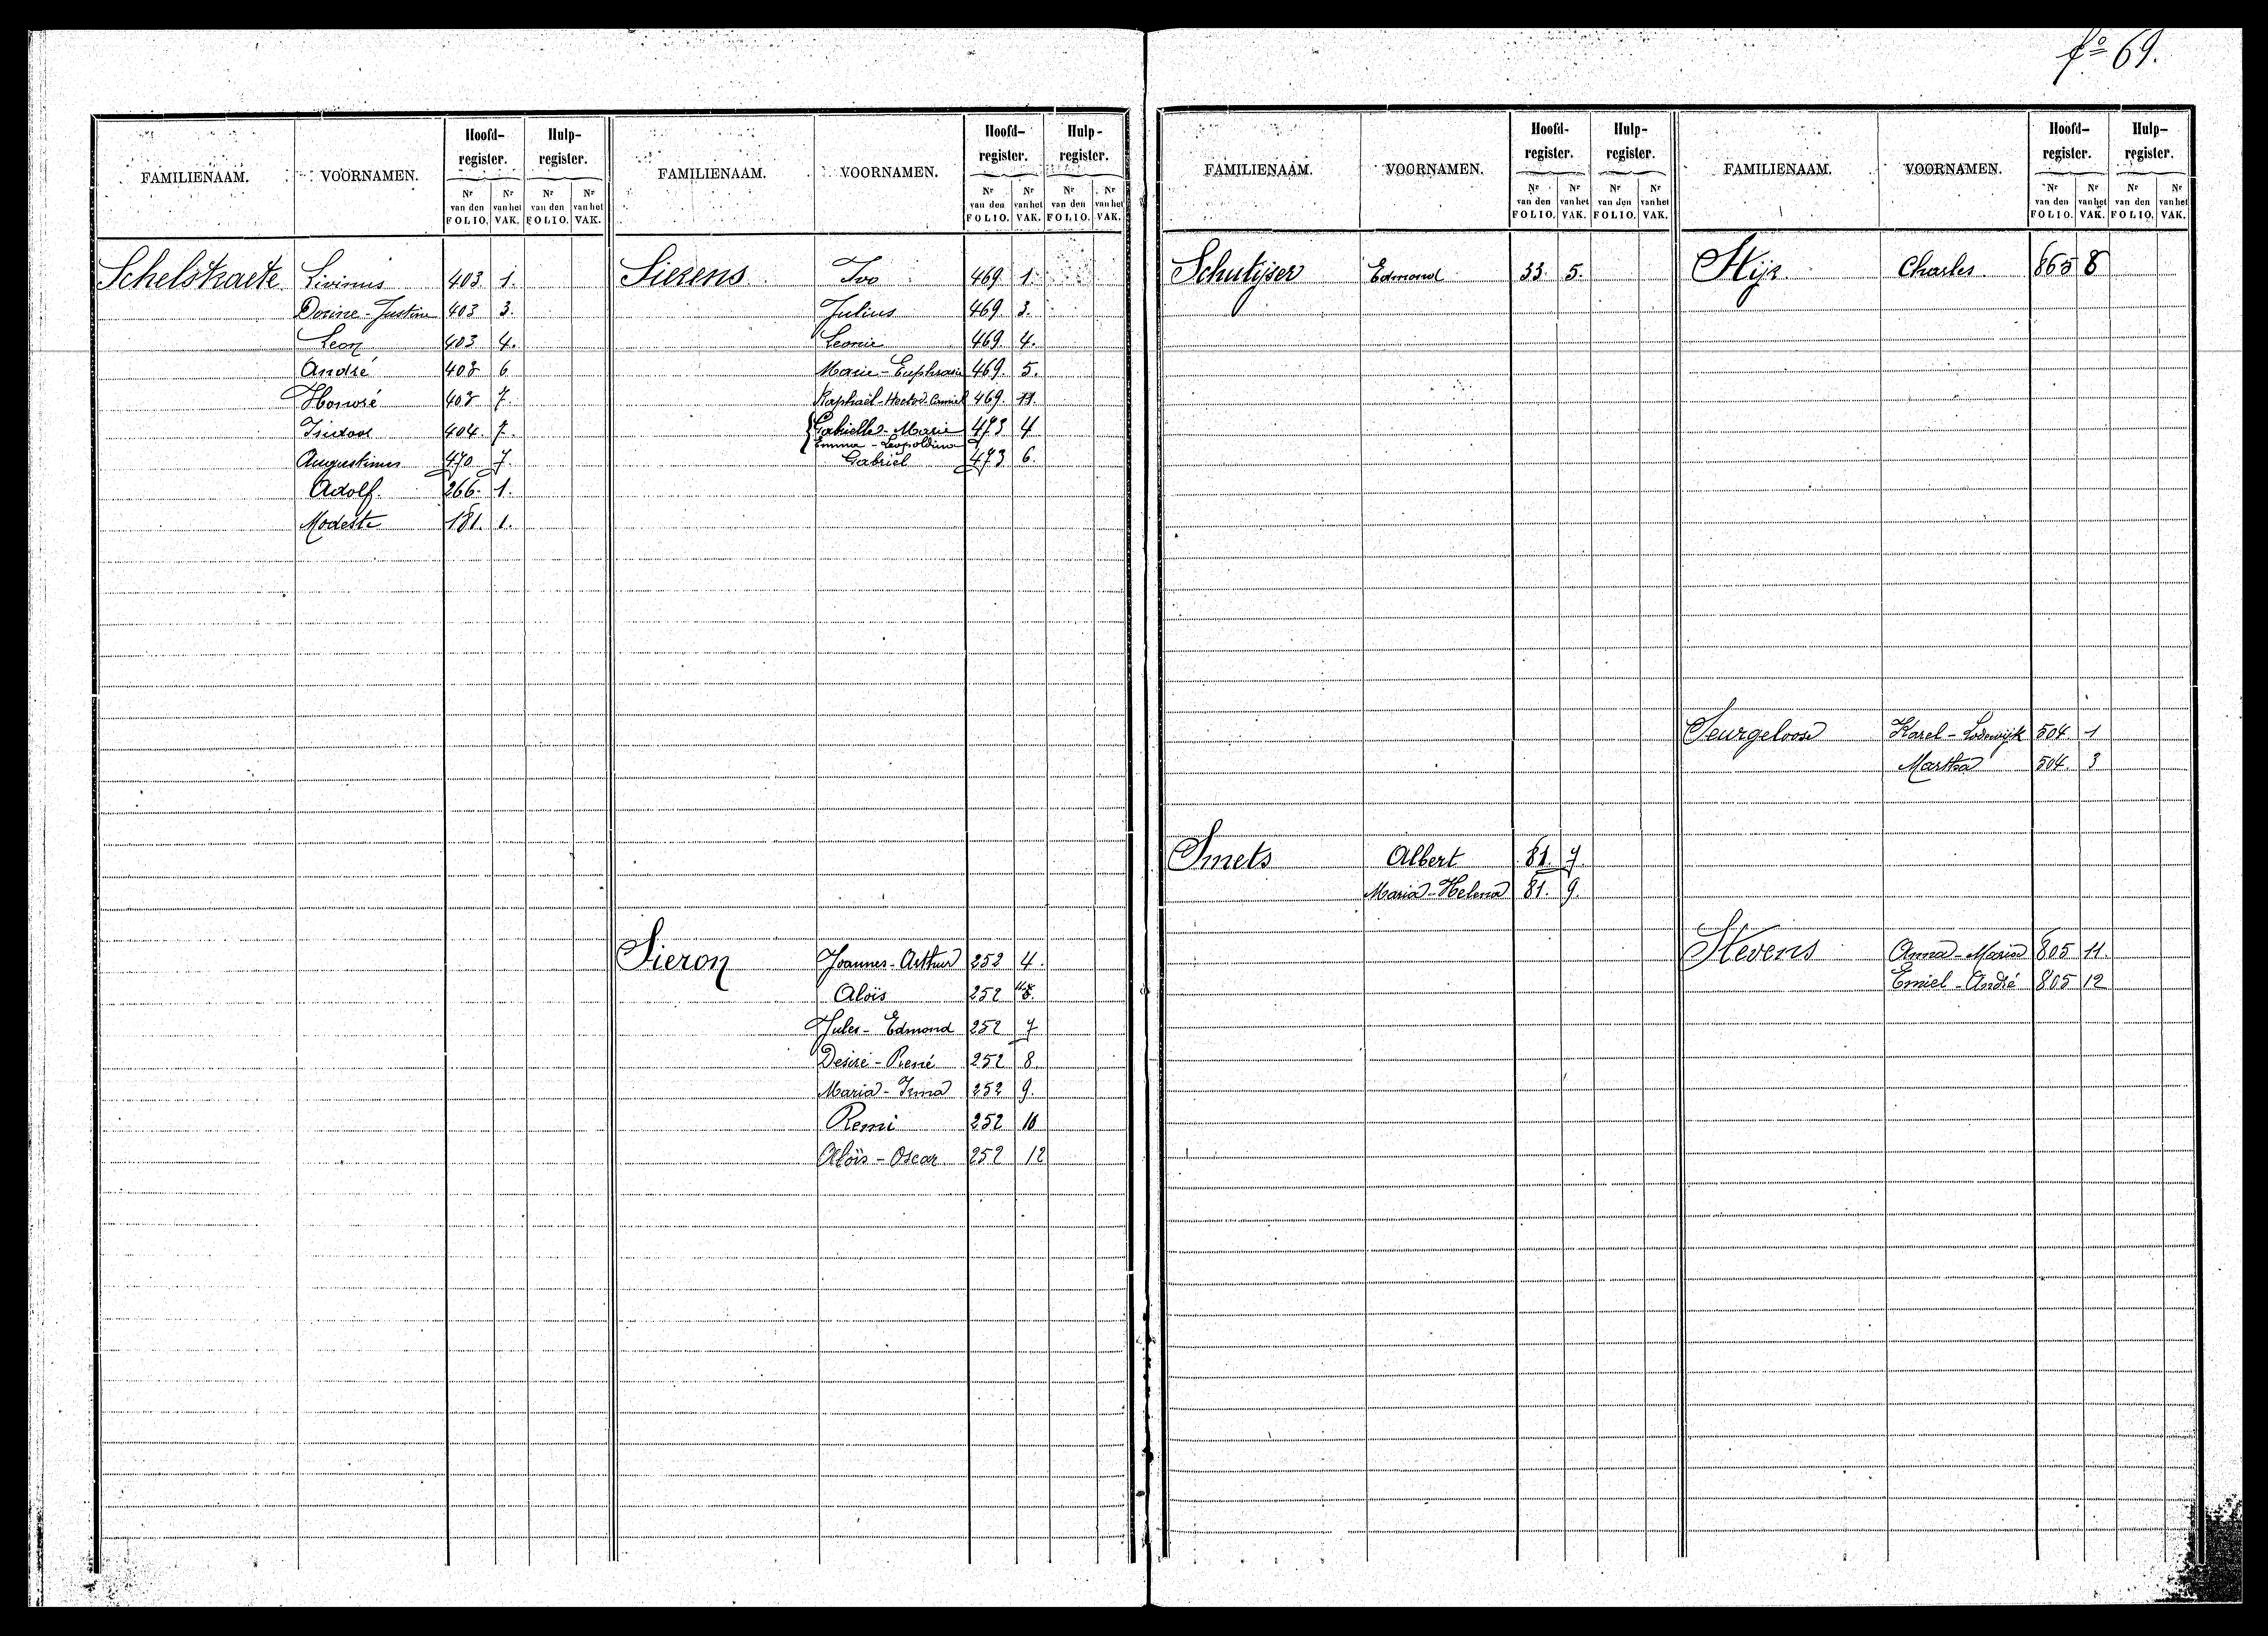 fo 69.
FAMILIENAAM. VOORNAMEN. Hoofd-register. Hulp-register.
Nr van den FOLIO. Nr van het VAK. Nr van den FOLIO. Nr van het VAK.
Schelstraete Livinus 403 1.
Dorine - Justine 403 3.
Leon 403 4.
André 403 6
Honoré 403 7.
Isidoor 404. 7.
Augustinus 470 7.
Adolf. 266. 1.
Modeste 181. 1.
FAMILIENAAM. VOORNAMEN. Hoofd-register. Hulp-register.
Nr van den FOLIO. Nr van het VAK. Nr van den FOLIO. Nr van het VAK.
Sierens Ivo 469 1.
Julius 469 3.
Leonie 469. 4.
Marie - Euphrasie 469. 5.
Raphaël - Hector - Camiel 469. 11.
Gabrielle - Marie 473 4
Emma - Leopoldina
Gabriel 473 6.
Sieron Joannes - Arthur 252 4.
Aloïs 252
Jules - Edmond 252 7
Desiré - René 252 8.
Maria - Irma 252 9.
Remi 252 10
Aloïs - Oscar 252 12
FAMILIENAAM. VOORNAMEN. Hoofd-register. Hulp-register.
Nr van den FOLIO. Nr van het VAK. Nr van den FOLIO. Nr van het VAK.
Schutijser Edmond 33. 5.
Smets Albert 81. 7.
Maria - Helena 81. 9.
FAMILIENAAM. VOORNAMEN. Hoofd-register. Hulp-register.
Nr van den FOLIO. Nr van het VAK. Nr van den FOLIO. Nr van het VAK.
Stijr Charles 865 8
Seurgeloose Karel - Lodewijk 504 1
Martha 504. 3
Stevens Anna - Maria 805 11.
Emiel - André 805 12